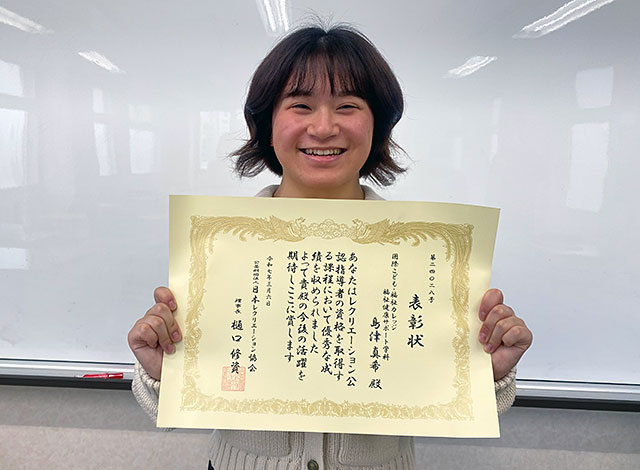 第二四〇二八号
表彰状
国際こども・福祉カレッジ
福祉健康サポート学科
島津真希 殿
あなたはレクリエーション公
認指導者の資格を取得す
る課程において優秀な成
績を収められました
よって貴殿の今後の活躍を
期待しここに賞します
令和七年三月六日
公益財団法人 日本レクリエーション協会
理事長 樋口修資